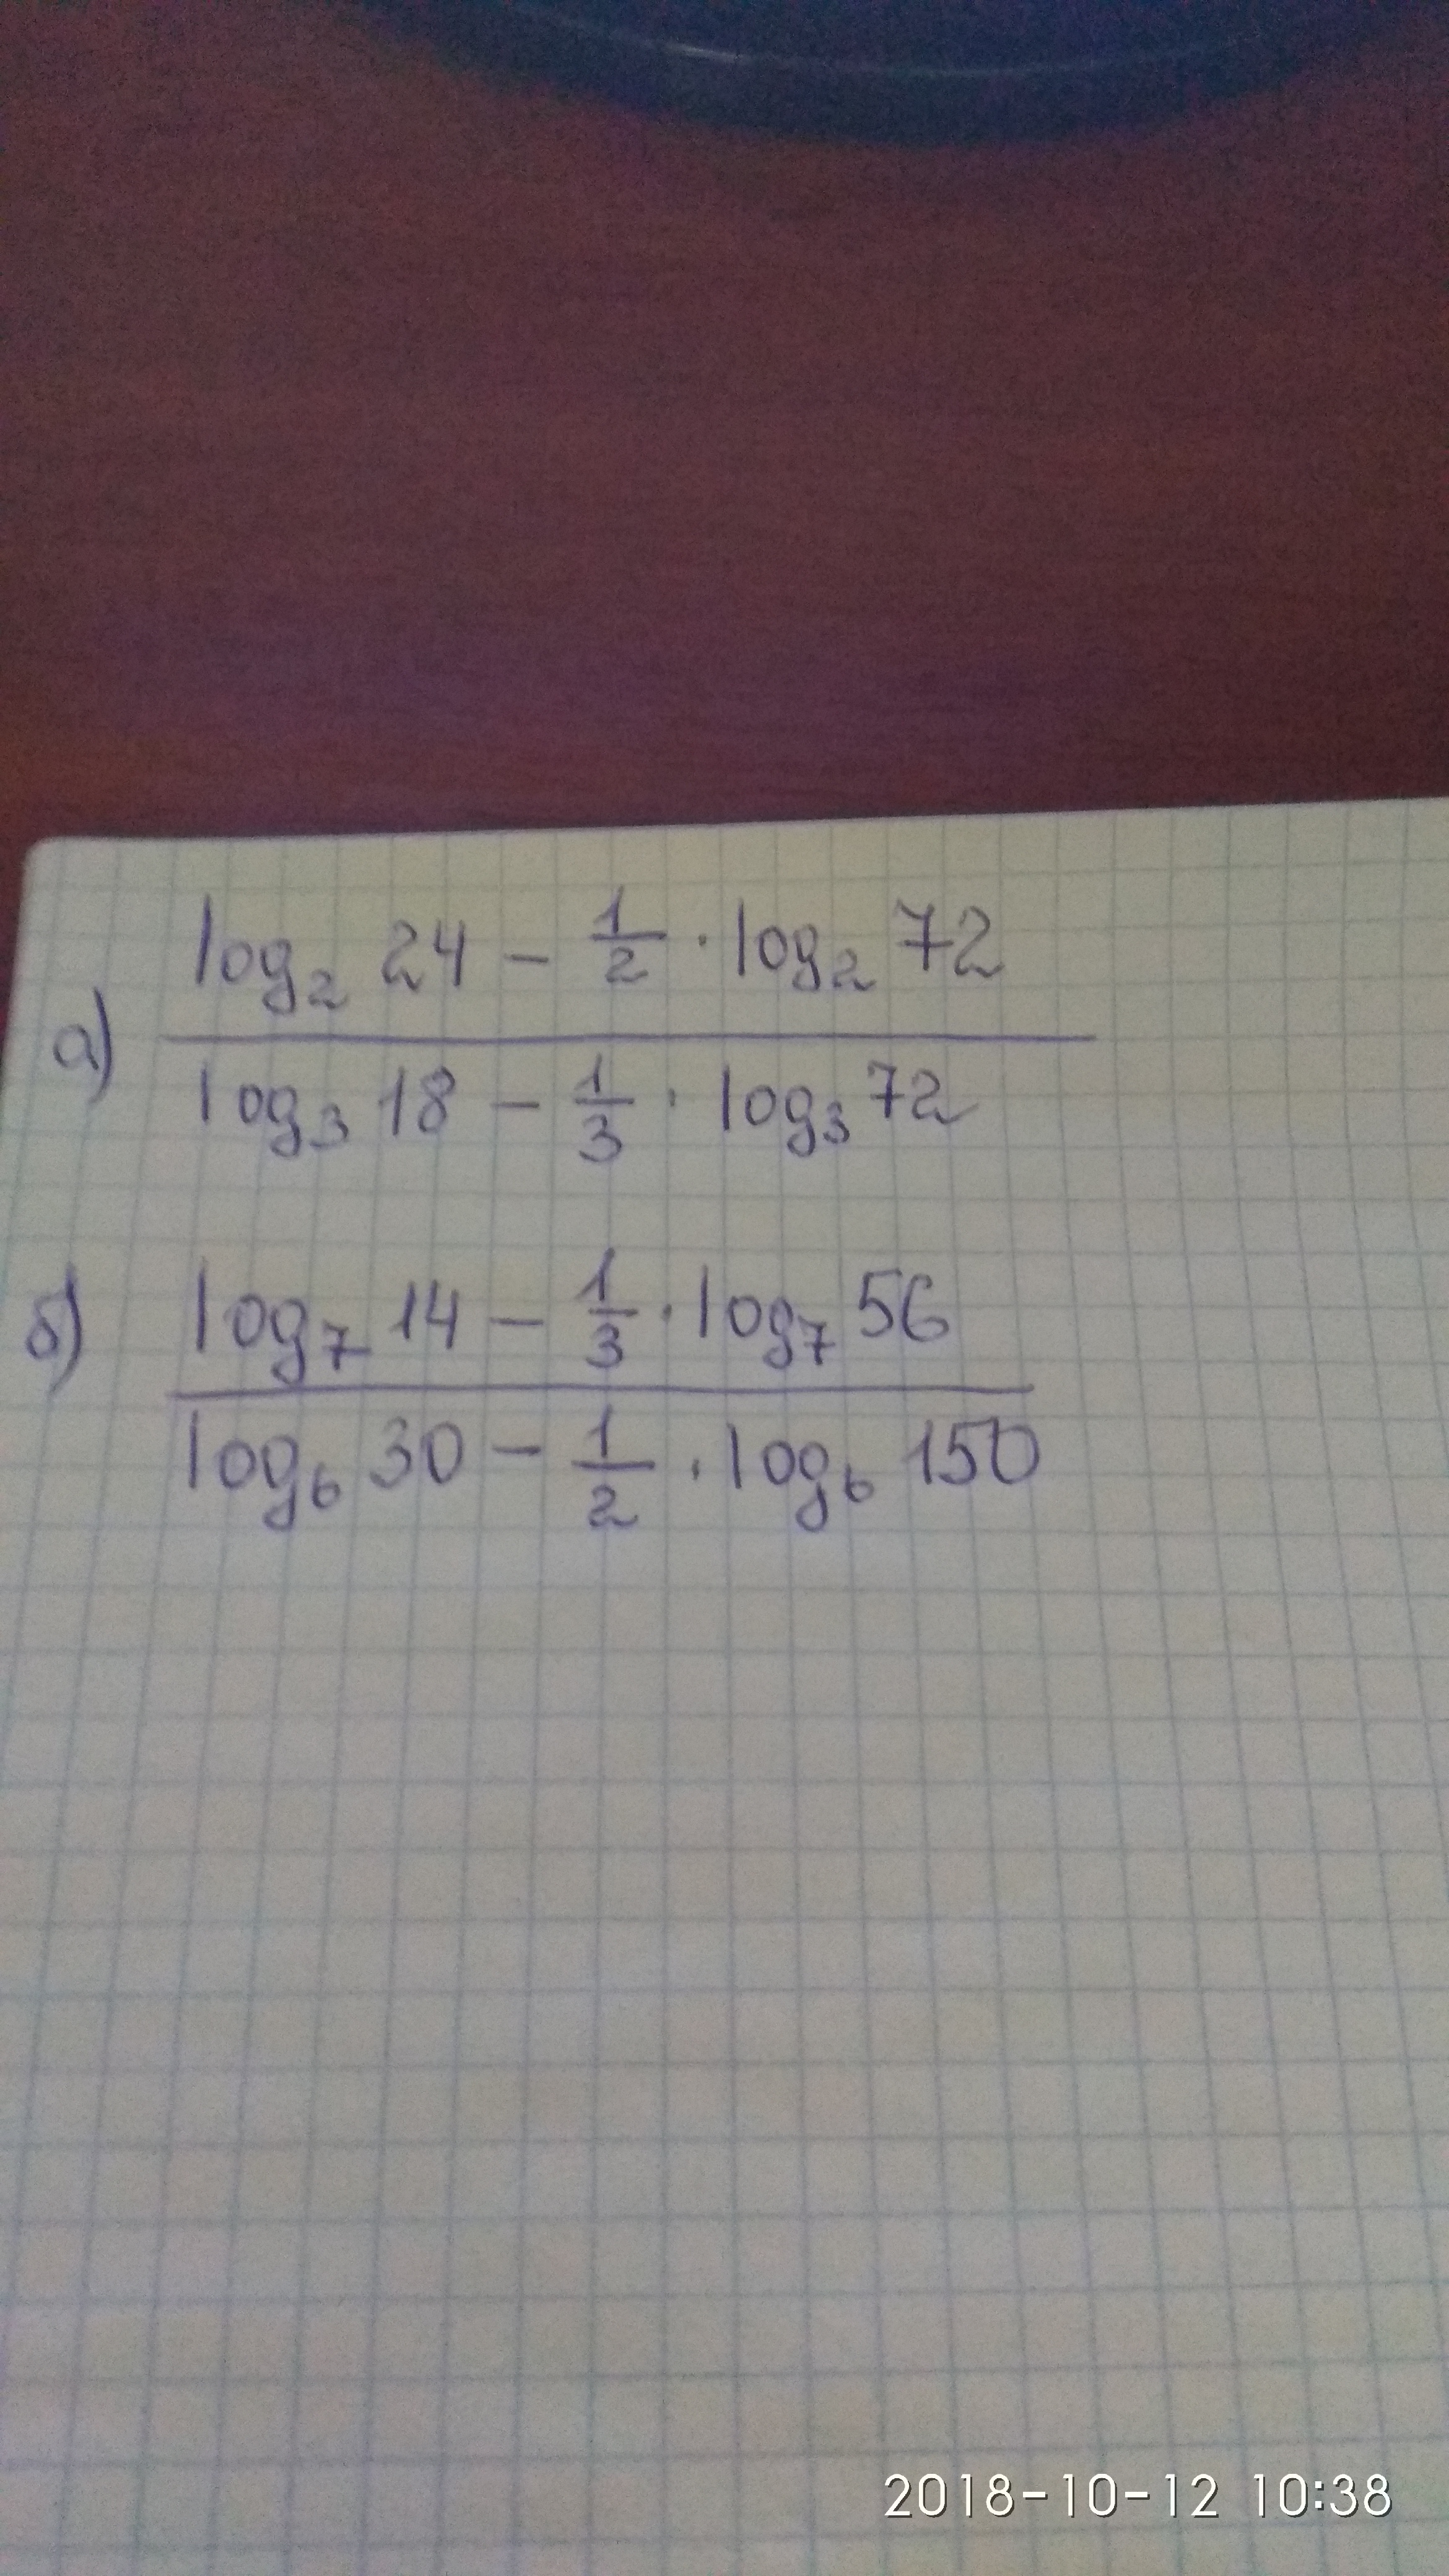 а) (log₂ 24 − 1/2 · log₂ 72) / (log₃ 18 − 1/3 · log₃ 72)
б) (log₇ 14 − 1/3 · log₇ 56) / (log₆ 30 − 1/2 · log₆ 150)
2018-10-12 10:38